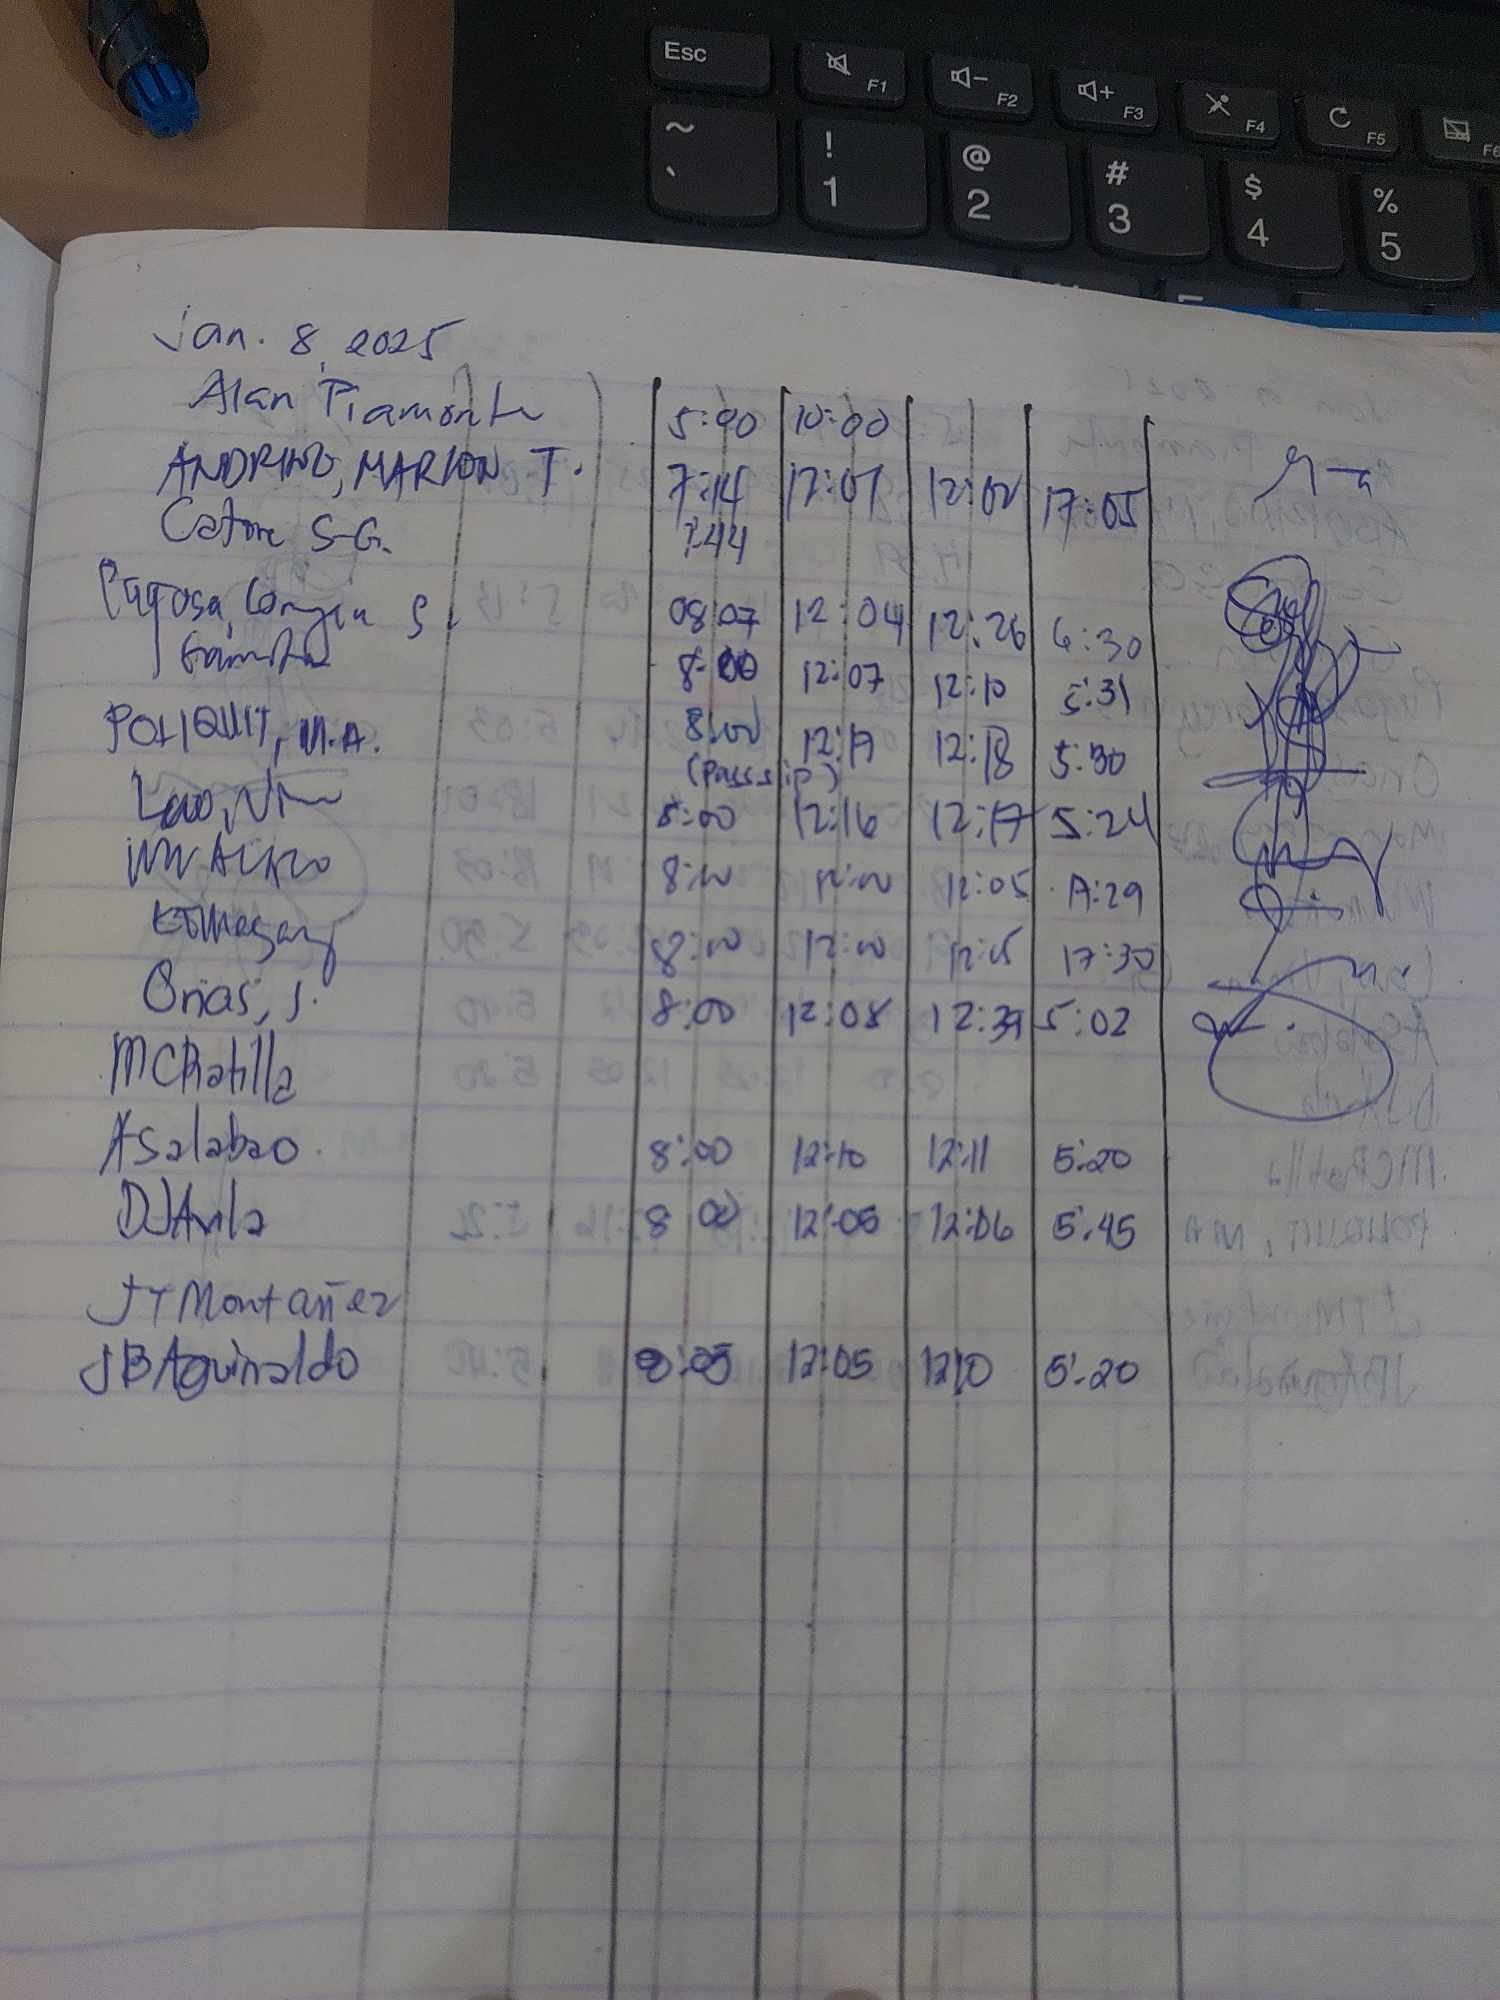 Esc F1 F2 F3 F4 F5 F6
~ ! @ # $ %
` 1 2 3 4 5
Jan. 8, 2025
Alan Piamonte 5:00 10:00
ANDRINO, MARION T. 7:14 12:01 12:02 17:05
Catore S.G. 7:44
Pugosa, S. 08:07 12:04 12:26 6:30
8:00 12:07 12:10 5:31
POLIQUIT, M.A. 8:00 12:17 12:18 5:30
(Pass slip)
Lao, 8:00 12:16 12:17 5:24
8:00 12:00 12:05 17:29
8:00 12:00 12:05 17:30
Orias, J. 8:00 12:08 12:39 5:02
MCRatilla
ASalabao 8:00 12:10 12:11 5:20
DJAvila 8 00 12:05 12:06 5:45
JTMontañez
JBAguinaldo 8:05 12:05 12:10 5:20